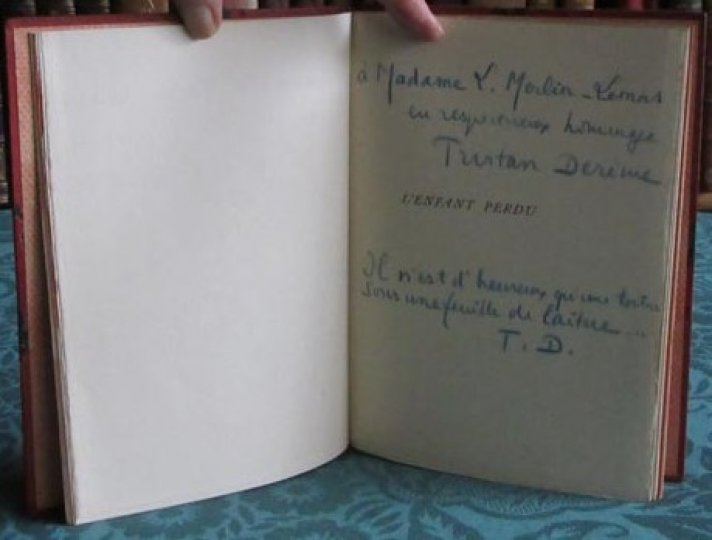 à Madame Y. Morlin-Lemas
en respectueux hommage
Tristan Derème
L'ENFANT PERDU
Il n'est d'heureux qu'une tortue
sous une feuille de laitue...
T. D.